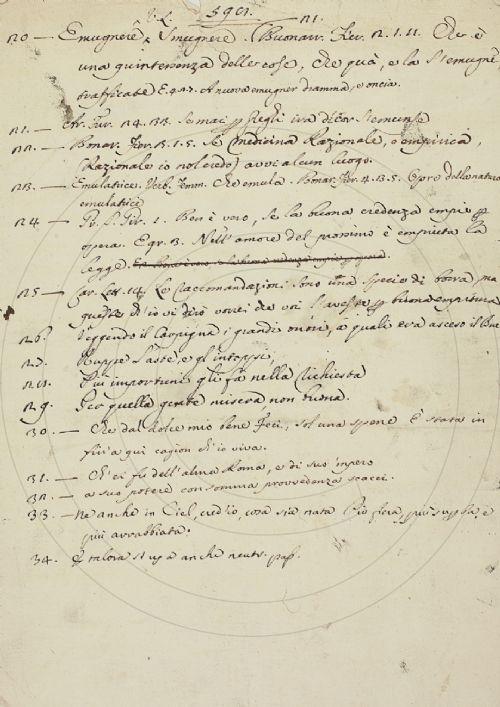 V. L. 5901. R1.
20 — Emugnere, Smugnere. Buonarr. Fier. 2. 1. 11. Che è
una quintessenza delle cose, che quà, e là s'emugne
trafficate E 4. 27. A nuova emugner dramma, e oncia.
21. — Ar. Fur. 24. 33. Se mai
22. — Bonar. Fier. 3. 1. 5. Se (medicina Razionale, o empirica,
(Razionale io nol credo) avvi alcun luogo.
23. — Emulatrice. Verb. femm. Che emula. Bonar. Fier. 4. 3. 5. Opre della natura
emulatrice
24 — 1. Ben è vero, se la buona credenza empie
opera. 3. Nell'amore del prossimo è empiuta la
legge.
25 — Car. Let. Le raccomandazioni sono una specie di borra, ma
questa ch'io vi dirò vorrei che voi l'aveste buona
26. Veggendo il Campigna i grandi onori, a quali era asceso il Bue
27. Ruppe l'aste, e gl'intoppi;
28. Più importuni gli fa nella richiesta
29. Per quella gente misera, non buona.
30. — Che dal dolce mio bene Feci, sol una spene È stata in
fin' a qui cagion ch'io viva.
31. — Ch'ei fu dell'alma Roma, e di suo 'mpero
32. — a suo potere con somma provvedenza
33. — Ne anche in Ciel, cred'io, cosa sia nata Più fiera, più superba, e
più arrabbiata.
34. E talora si usa anche neutr. pass.